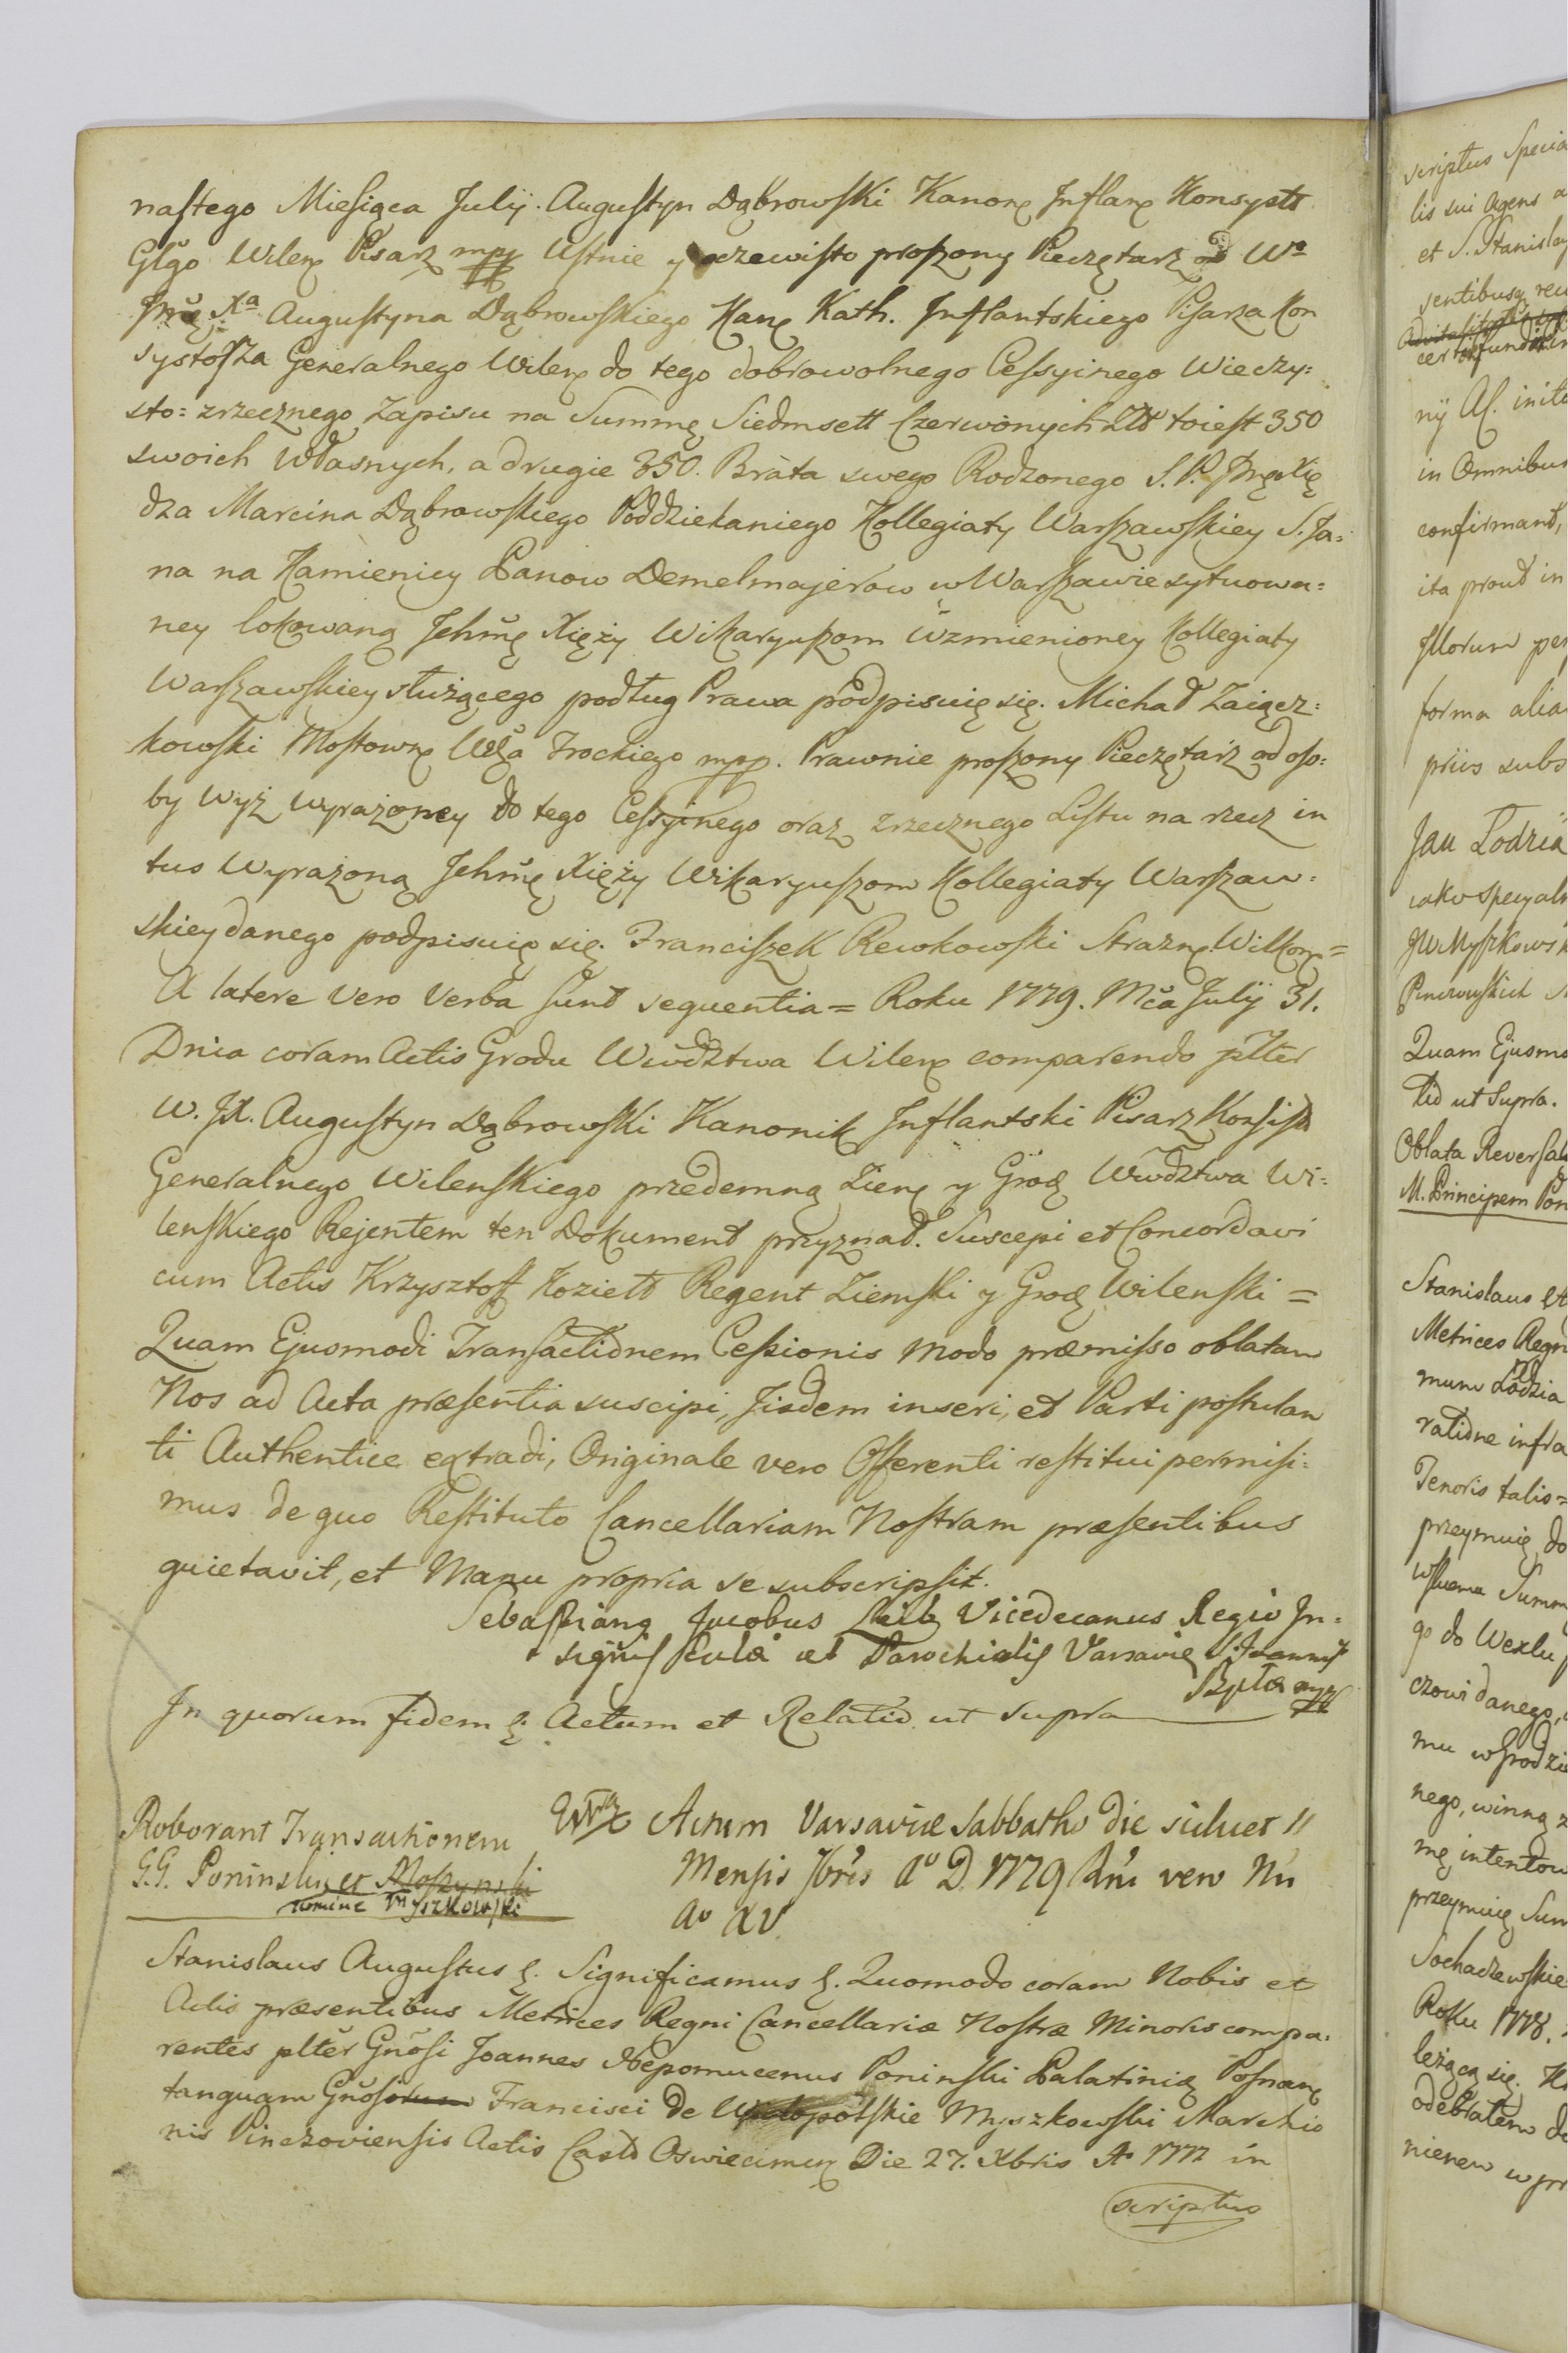 nastego Miesiąca Julij. Augustyn Dąbrowski Kanon Inflan Konsystł
Głgo Wilen Pisarz mpp Ustnie y oczewisto proszony Pieczętarz od Wo
Jmę Xa Augustyna Dąbrowskiego Kan Kath. Inflantskiego Pisarza Kon
systorza Generalnego Wilen do tego dobrowolnego Cessyinego Wieczy:
sto: zrzecznego Zapisu na Summę Siedmsett Czerwonych Złł toiest 350
swoich własnych, a drugie 350. Brata swego Rodzonego S. P. Jmę Xię
dza Marcina Dąbrowskiego Poddziekaniego Kollegiaty Warszawskiey S. Ja:
na na Kamienicy Panow Demelmajerow w Warszawie sytuowa:
ney lokowaną Jchmę Xięży Wikaryuszom wzmienioney Kollegiaty
Warszawskiey służącego podług Prawa podpisuię się. Michał Zaiącz:
kowski Mostown Wdła Trockiego mpp. Prawnie proszony Pieczętarz od oso:
by wyż wyrażoney do tego Cessyinego oraz zrzecznego Listu na rzecz in
tus wyrażoną Jchmę Xięży Wikaryuszom Kollegiaty Warszaw:
skiey danego podpisuię się. Franciszek Rewkowski Strażn Wilkom =
A latere vero Verba sunt sequentia = Roku 1779. Mca Julij 31.
Dnia coram Actis Grodu Wwdztwa Wilen comparendo plter
W. JX. Augustyn Dąbrowski Kanonik Inflantski Pisarz Konsist
Generalnego Wilenskiego przedemną Ziem y Grod Wwdztwa Wi:
lenskiego Rejentem ten Dokument przyznał. Suscepi et Concordavi
cum Actis Krzysztoff Koziełł Regent Ziemski y Grod Wilenski =
Quam Ejusmodi Transactionem Cessionis modo præmisso oblatam
Nos ad Acta præsentia suscipi, Iisdem inseri, et Parti postulan
ti Authentice extradi, Originale vero Offerenti restitui permisi:
mus de quo Restituto Cancellariam Nostram præsentibus
quietavit, et Manu propria se subscripsit.
Sebastiang Jacobus Vicedecanus Regio In:
signis Eccla et Parochialis Varsavię S. Joannis
Bptæ mpp
In quorum fidem ę. Actum et Relatio ut supra
Roborant Transactionem
G.G. Poninski et Moszynski
nomine Myszkowski
Actum Varsaviæ Sabbatho die scilicet 11
Mensis Xbris Ao D. 1779 Rni vero Nri
Ao XV
Stanislaus Augustus ę. Significamus ę. Quomodo coram Nobis et
Actis præsentibus Metrices Regni Cancellariæ Nostræ Minoris compa:
rentes plter Gnosi Joannes Nepomucenus Poninski Palatinię Posnan
tanquam Gnosorum Francisci de Wielopolskie Myszkowski Marchio
nis Pinczoviensis Actis Castr Oswiecimen Die 27. Xbris Ao 1777 in
scriptus
scriptus Specia
lis sui Agens a
et S. Stanislay
sentibusq rec
nij Af. inito
in Omnibus
confirmant,
ita prout in
Illorum per
forma alia
priis subs
Jan Łodzia
iako specyaln
JW Myszkowsk
Pinczowskich
Quam Ejusmo
tio ut Supra.
Oblata Reversal
M. Principem Pon
Stanislaus A
Metrices Regn
mum Łodzia
ratione infra
Tenoris talis =
przeymuię do
Summ
go do Wexlu
czowi danego,
mu w Grodzie
nego, winną z
mę intentow
przeymuię Sum
Sochaczewskie
Roku 1778.
leżącą się. K
odebrałem do
nienem w pr